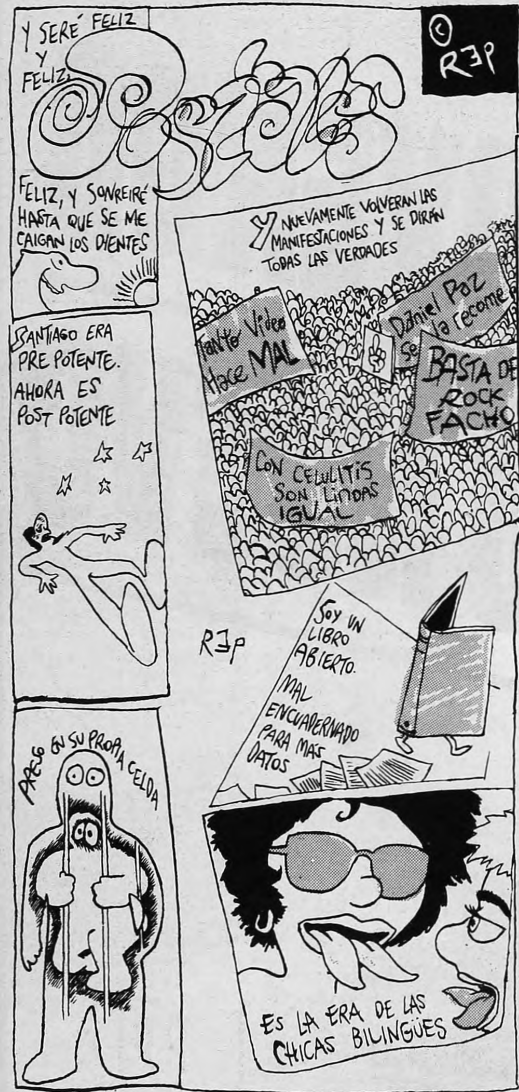 Y SERÉ FELIZ
Y
FELIZ,
Postales
FELIZ, Y SONREIRÉ
HASTA QUE SE ME
CAIGAN LOS DIENTES
©
REP
Y NUEVAMENTE VOLVERAN LAS
MANIFESTACIONES Y SE DIRÁN
TODAS LAS VERDADES
Tanto Video
Hace MAL
Daniel Paz
Se la recome
BASTA DE
ROCK
FACHO
CON CELULITIS
SON LINDAS
IGUAL
SANTIAGO ERA
PRE POTENTE.
AHORA ES
POST POTENTE
REP
SOY UN
LIBRO
ABIERTO.
MAL
ENCUADERNADO
PARA MAS
DATOS
PRESO EN SU PROPIA CELDA
ES LA ERA DE LAS
CHICAS BILINGÜES